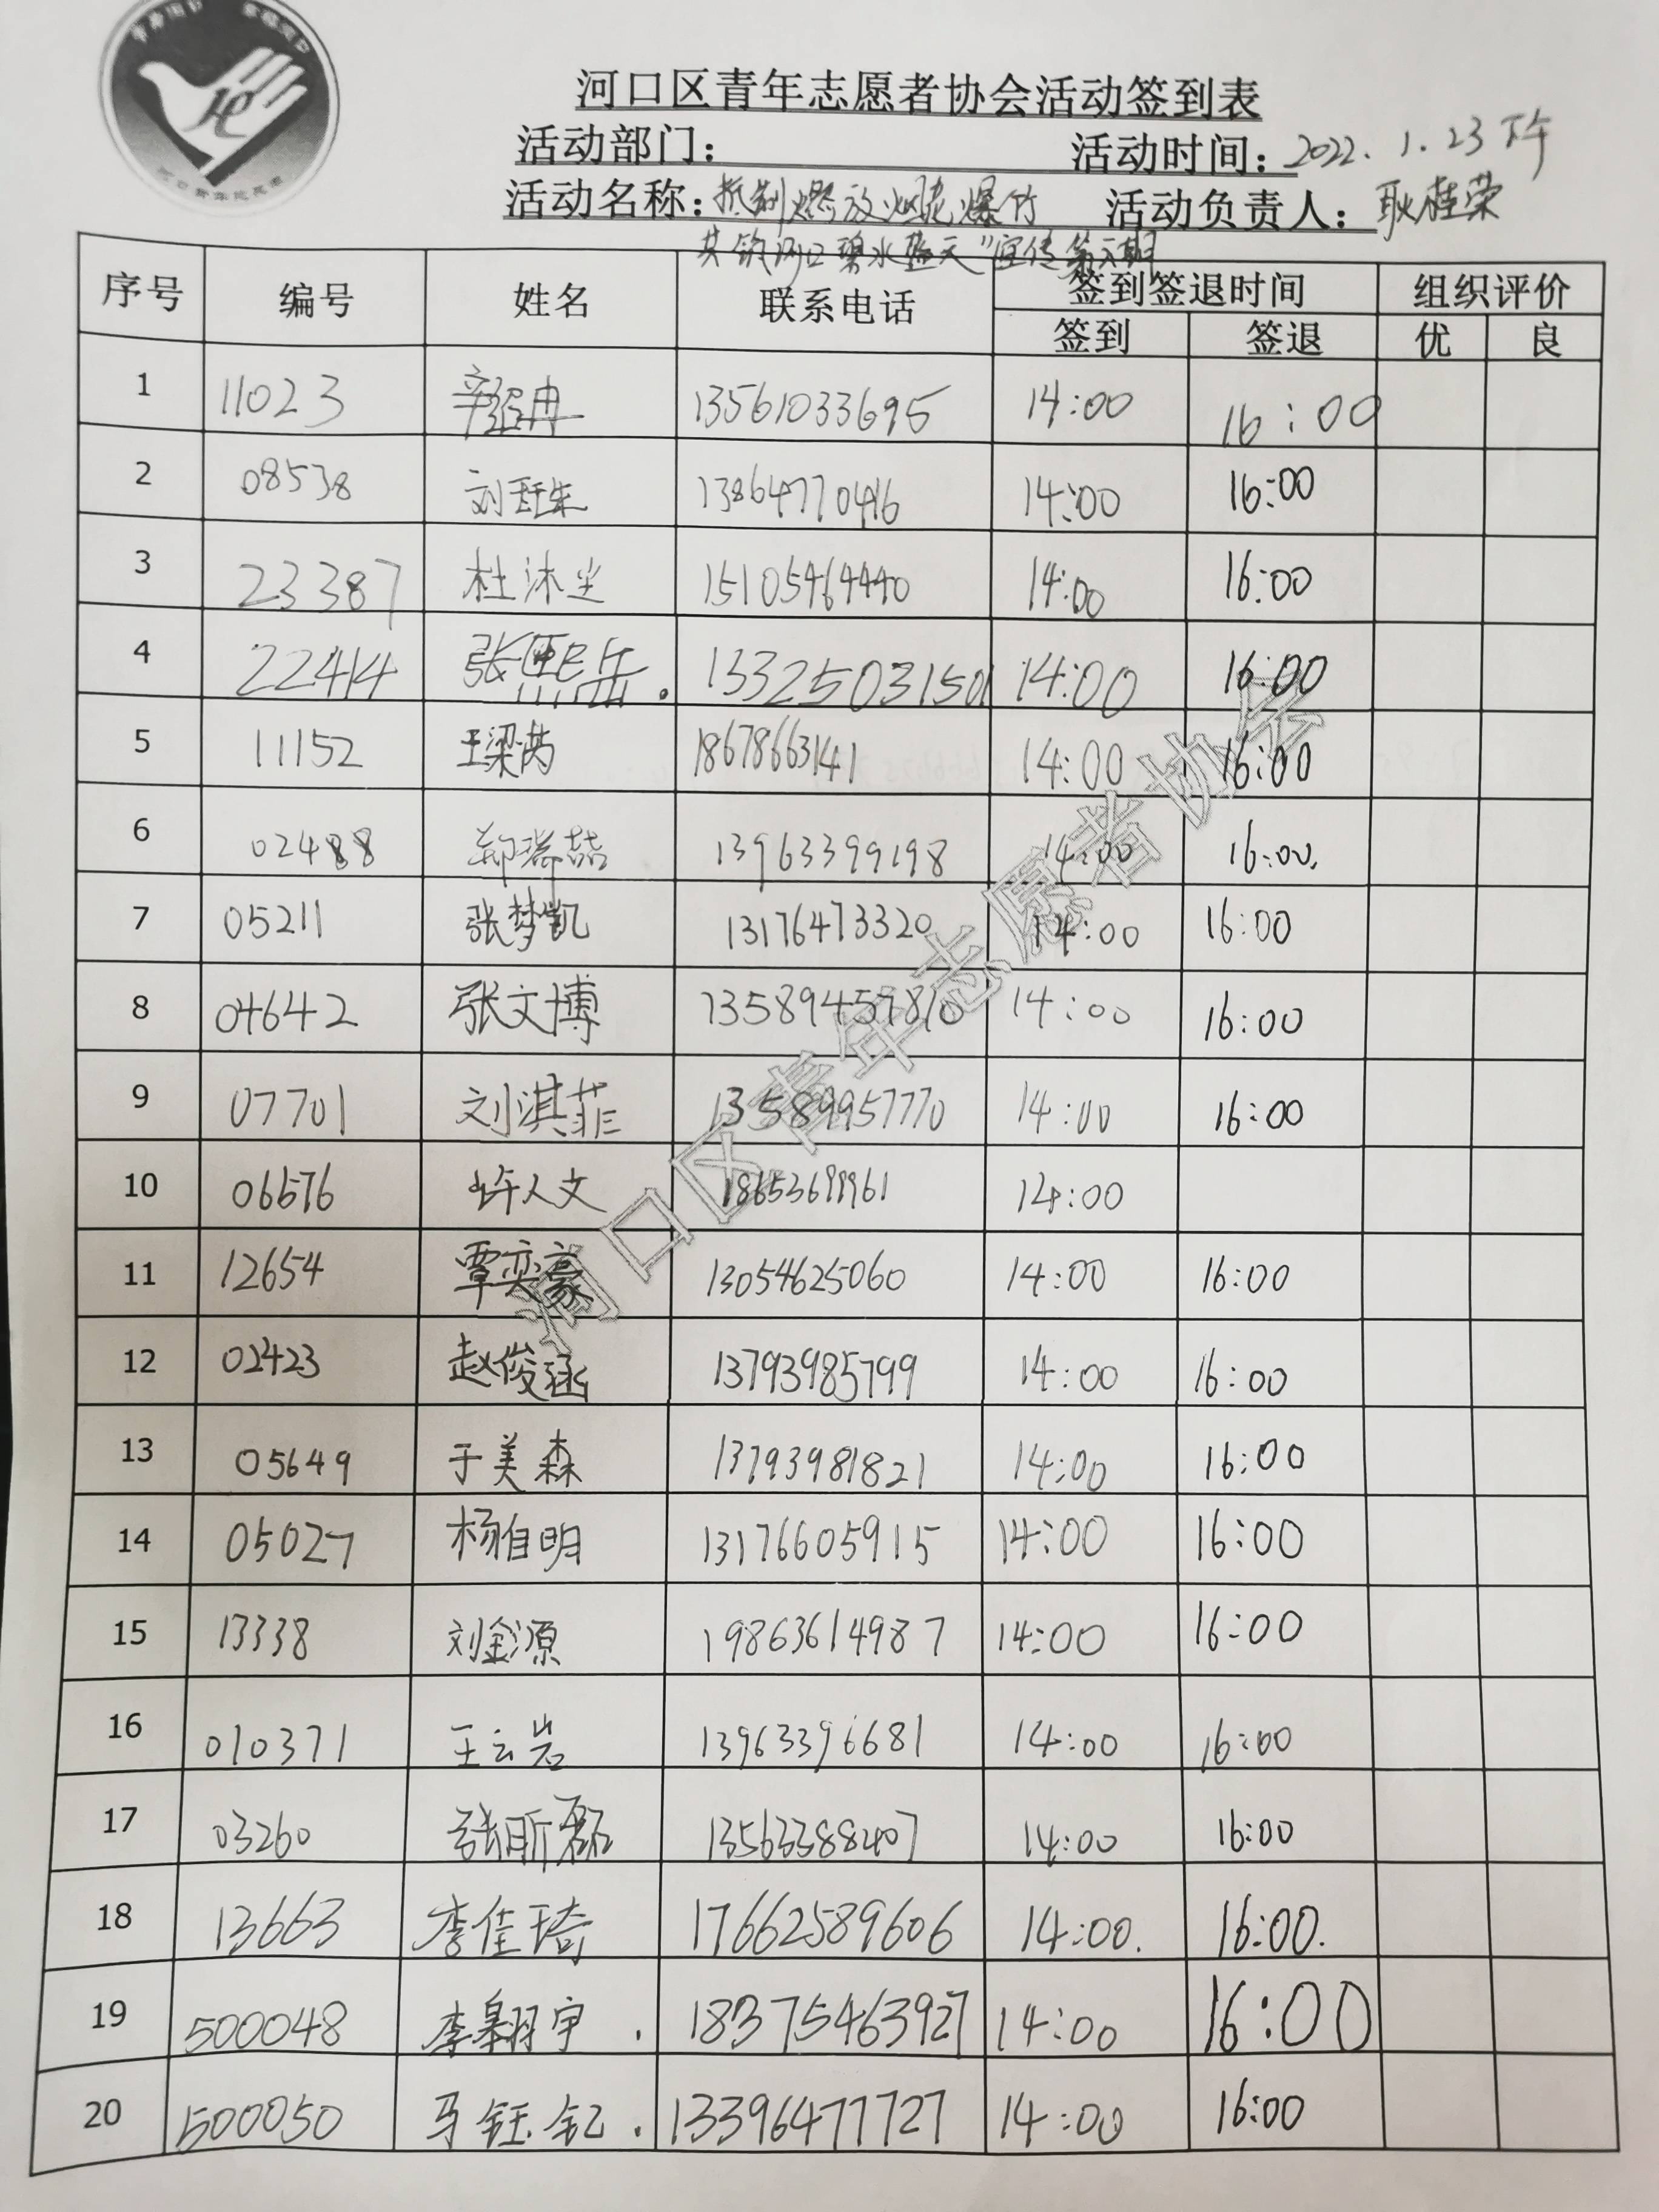 河口区青年志愿者协会活动签到表
活动部门： 活动时间：2022.1.23下午
活动名称：抵制燃放烟花爆竹 活动负责人：耿桂荣
共筑河口碧水蓝天”宣传第六期
序号 编号 姓名 联系电话 签到签退时间 组织评价
签到 签退 优 良
1 11023 13561033695 14:00 16:00
2 08538 13864770416 14:00 16:00
3 23387 杜沐尘 15105464440 14:00 16:00
4 22414 张熙岳. 13325031501 14:00 16:00
5 11152 王梁芮 18678663141 14:00 16:00
6 02488 郑瑞喆 13963399198 14:00 16:00.
7 05211 张梦凯 13176473320 14:00 16:00
8 04642 张文博 13589457810 14:00 16:00
9 07701 刘淇菲 13589957770 14:00 16:00
10 06676 许人文 18653699961 14:00
11 12654 覃奕豪 13054625060 14:00 16:00
12 02423 赵俊涵 13793985799 14:00 16:00
13 05649 于美森 13793981821 14:00 16:00
14 05027 杨自明 13176605915 14:00 16:00
15 13338 刘金源 19863614987 14:00 16:00
16 010371 王云岩 13963396681 14:00 16:00
17 03260 张昕磊 13563388407 14:00 16:00
18 13663 李佳琦 17662589606 14:00. 16:00.
19 500048 李翱宇. 18375463927 14:00 16:00
20 500050 马钰钇. 13396477727 14:00 16:00
河口区青年志愿者协会